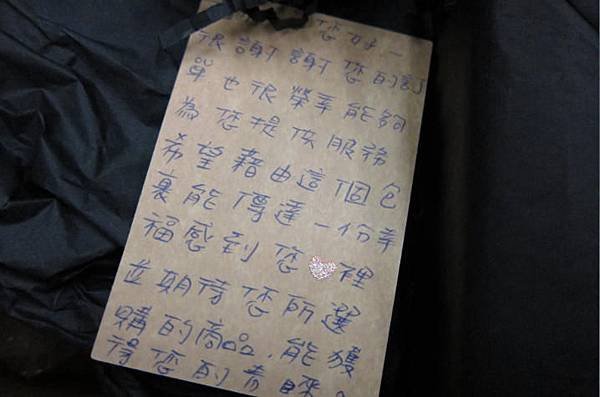 您好一
很謝謝您的訂
單也很榮幸能夠
為您提供服務
希望藉由這個包
裹能傳達一份幸
福感到您裡
並期待您所選
購的商品,能獲
得您的青睞。